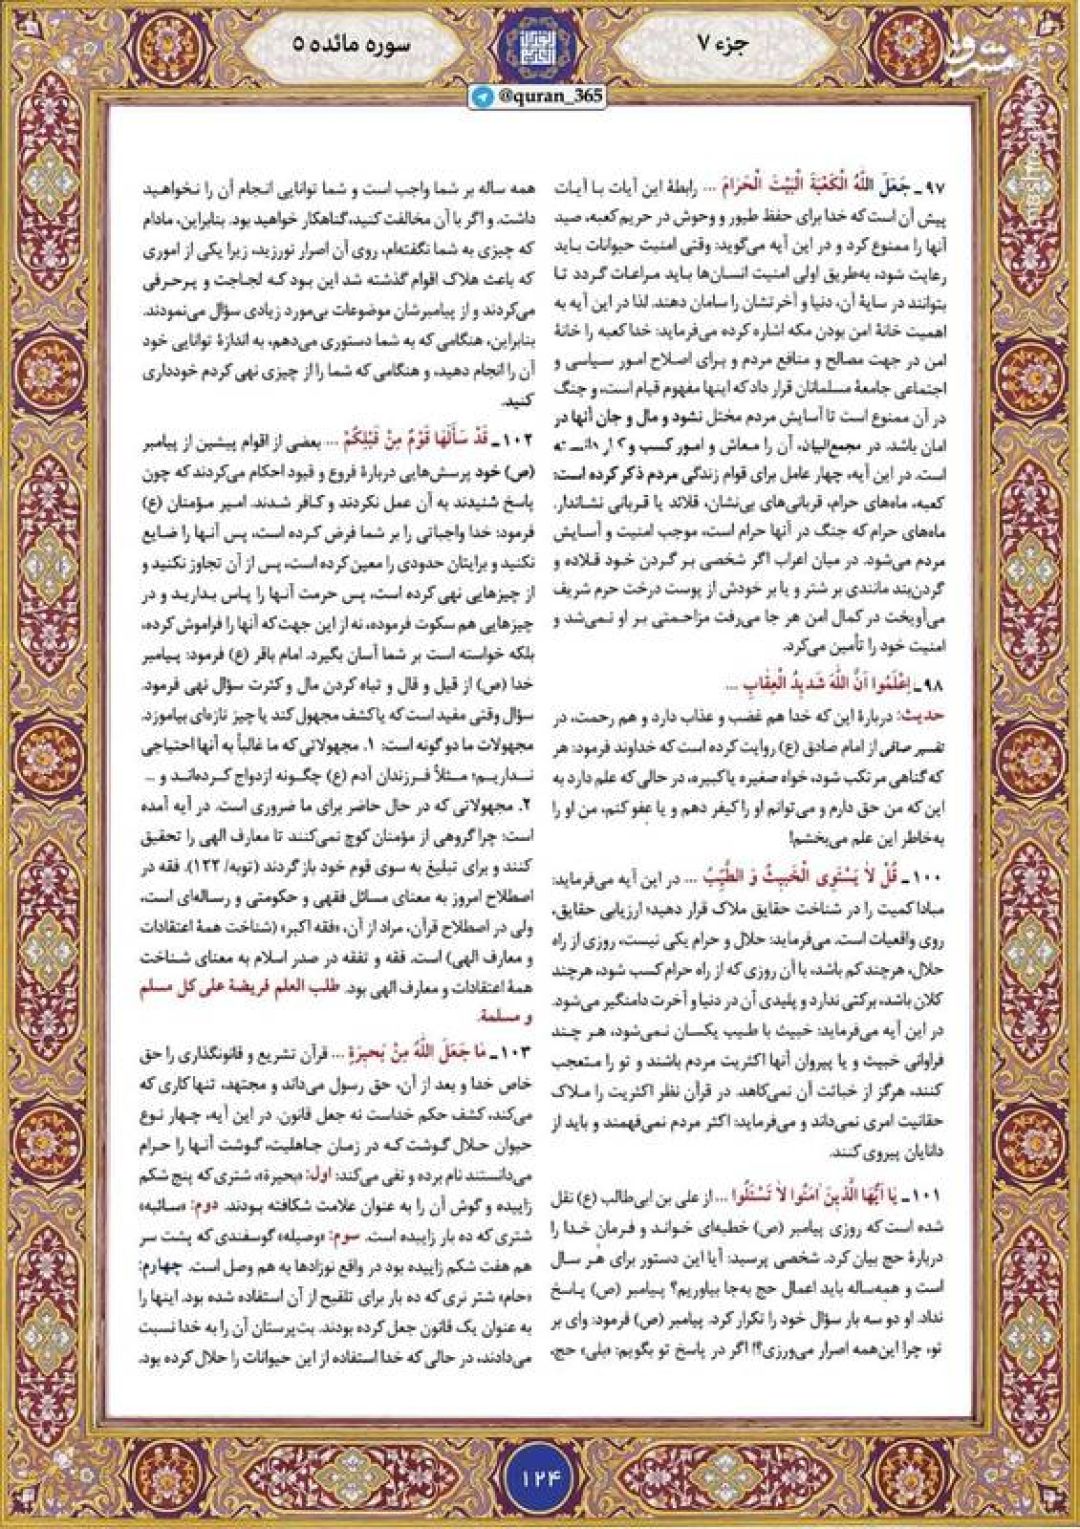 جزء ۷
سوره مائده ۵
مشرق
@quran_365
۹۷ـ جَعَلَ اللّٰهُ الْكَعْبَةَ الْبَيْتَ الْحَرَامَ ... رابطهٔ این آیات با آیات
پیش آن است که خدا برای حفظ طیور و وحوش در حریم کعبه، صید
آنها را ممنوع کرد و در این آیه می‌گوید: وقتی امنیت حیوانات باید
رعایت شود، به‌طریق اولی امنیت انسان‌ها باید مراعات گردد تا
بتوانند در سایهٔ آن، دنیا و آخرتشان را سامان دهند. لذا در این آیه به
اهمیت خانهٔ امن بودن مکه اشاره کرده می‌فرماید: خدا کعبه را خانهٔ
امن در جهت مصالح و منافع مردم و برای اصلاح امور سیاسی و
اجتماعی جامعهٔ مسلمانان قرار داد که اینها مفهوم قیام است، و جنگ
در آن ممنوع است تا آسایش مردم مختل نشود و مال و جان آنها در
امان باشد. در مجمع‌البیان، آن را معاش و امور کسب و کار دانسته
است. در این آیه، چهار عامل برای قوام زندگی مردم ذکر کرده است:
کعبه، ماه‌های حرام، قربانی‌های بی‌نشان، قلائد یا قربانی نشاندار.
ماه‌های حرام که جنگ در آنها حرام است، موجب امنیت و آسایش
مردم می‌شود. در میان اعراب اگر شخصی بر گردن خود قلاده و
گردن‌بند مانندی بر شتر و یا بر خودش از پوست درخت حرم شریف
می‌آویخت در کمال امن هر جا می‌رفت مزاحمتی بر او نمی‌شد و
امنیت خود را تأمین می‌کرد.
۹۸ـ اِعْلَمُوا اَنَّ اللّٰهَ شَدِيدُ الْعِقَابِ ...
حدیث: دربارهٔ این که خدا هم غضب و عذاب دارد و هم رحمت، در
تفسیر صافی از امام صادق (ع) روایت کرده است که خداوند فرمود: هر
که گناهی مرتکب شود، خواه صغیره یا کبیره، در حالی که علم دارد به
این که من حق دارم و می‌توانم او را کیفر دهم و یا عفو کنم، من او را
به‌خاطر این علم می‌بخشم!
۱۰۰ـ قُلْ لاٰ يَسْتَوِى الْخَبِيثُ وَ الطَّيِّبُ ... در این آیه می‌فرماید:
مبادا کمیت را در شناخت حقایق ملاک قرار دهید؛ ارزیابی حقایق،
روی واقعیات است. می‌فرماید: حلال و حرام یکی نیست، روزی از راه
حلال، هرچند کم باشد، با آن روزی که از راه حرام کسب شود، هرچند
کلان باشد، برکتی ندارد و پلیدی آن در دنیا و آخرت دامنگیر می‌شود.
در این آیه می‌فرماید: خبیث با طیب یکسان نمی‌شود، هر چند
فراوانی خبیث و یا پیروان آنها اکثریت مردم باشند و تو را متعجب
کنند، هرگز از خباثت آن نمی‌کاهد. در قرآن نظر اکثریت را ملاک
حقانیت امری نمی‌داند و می‌فرماید: اکثر مردم نمی‌فهمند و باید از
دانایان پیروی کنند.
۱۰۱ـ يَا اَيُّهَا الَّذِينَ آمَنُوا لاٰ تَسْئَلُوا ... از علی بن ابی‌طالب (ع) نقل
شده است که روزی پیامبر (ص) خطبه‌ای خواند و فرمان خدا را
دربارهٔ حج بیان کرد. شخصی پرسید: آیا این دستور برای هر سال
است و همه‌ساله باید اعمال حج به‌جا بیاوریم؟ پیامبر (ص) پاسخ
نداد. او دو سه بار سؤال خود را تکرار کرد. پیامبر (ص) فرمود: وای بر
تو، چرا این‌همه اصرار می‌ورزی؟! اگر در پاسخ تو بگویم: «بلی» حج،
همه ساله بر شما واجب است و شما توانایی انجام آن را نخواهید
داشت. و اگر با آن مخالفت کنید، گناهکار خواهید بود. بنابراین، مادام
که چیزی به شما نگفته‌ام، روی آن اصرار نورزید، زیرا یکی از اموری
که باعث هلاک اقوام گذشته شد این بود که لجاجت و پرحرفی
می‌کردند و از پیامبرشان موضوعات بی‌مورد زیادی سؤال می‌نمودند.
بنابراین، هنگامی که به شما دستوری می‌دهم، به اندازهٔ توانایی خود
آن را انجام دهید، و هنگامی که شما را از چیزی نهی کردم خودداری
کنید.
۱۰۲ـ قَدْ سَأَلَهَا قَوْمٌ مِنْ قَبْلِكُمْ ... بعضی از اقوام پیشین از پیامبر
(ص) خود پرسش‌هایی دربارهٔ فروع و قیود احکام می‌کردند که چون
پاسخ شنیدند به آن عمل نکردند و کافر شدند. امیر مؤمنان (ع)
فرمود: خدا واجباتی را بر شما فرض کرده است، پس آنها را ضایع
نکنید و برایتان حدودی را معین کرده است، پس از آن تجاوز نکنید و
از چیزهایی نهی کرده است، پس حرمت آنها را پاس بدارید و در
چیزهایی هم سکوت فرموده، نه از این جهت که آنها را فراموش کرده،
بلکه خواسته است بر شما آسان بگیرد. امام باقر (ع) فرمود: پیامبر
خدا (ص) از قیل و قال و تباه کردن مال و کثرت سؤال نهی فرمود.
سؤال وقتی مفید است که یا کشف مجهول کند یا چیز تازه‌ای بیاموزد.
مجهولات ما دو گونه است: ۱. مجهولاتی که ما غالباً به آنها احتیاجی
نداریم؛ مثلاً فرزندان آدم (ع) چگونه ازدواج کرده‌اند و ...
۲. مجهولاتی که در حال حاضر برای ما ضروری است. در آیه آمده
است: چرا گروهی از مؤمنان کوچ نمی‌کنند تا معارف الهی را تحقیق
کنند و برای تبلیغ به سوی قوم خود باز گردند (توبه/ ۱۲۲). فقه در
اصطلاح امروز به معنای مسائل فقهی و حکومتی و رساله‌ای است،
ولی در اصطلاح قرآن، مراد از آن، «فقه اکبر» (شناخت همهٔ اعتقادات
و معارف الهی) است. فقه و تفقه در صدر اسلام به معنای شناخت
همهٔ اعتقادات و معارف الهی بود. طلب العلم فریضة علی کل مسلم
و مسلمة.
۱۰۳ـ مَا جَعَلَ اللّٰهُ مِنْ بَحِيرَةٍ ... قرآن تشریع و قانونگذاری را حق
خاص خدا و بعد از آن، حق رسول می‌داند و مجتهد، تنها کاری که
می‌کند، کشف حکم خداست نه جعل قانون. در این آیه، چهار نوع
حیوان حلال گوشت که در زمان جاهلیت، گوشت آنها را حرام
می‌دانستند نام برده و نفی می‌کند: اول: «بحیرة»، شتری که پنج شکم
زاییده و گوش آن را به عنوان علامت شکافته بودند. دوم: «سائبه»
شتری که ده بار زاییده است. سوم: «وصیله» گوسفندی که پشت سر
هم هفت شکم زاییده بود در واقع نوزادها به هم وصل است. چهارم:
«حام» شتر نری که ده بار برای تلقیح از آن استفاده شده بود. اینها را
به عنوان یک قانون جعل کرده بودند. بت‌پرستان آن را به خدا نسبت
می‌دادند، در حالی که خدا استفاده از این حیوانات را حلال کرده بود.
۱۲۴